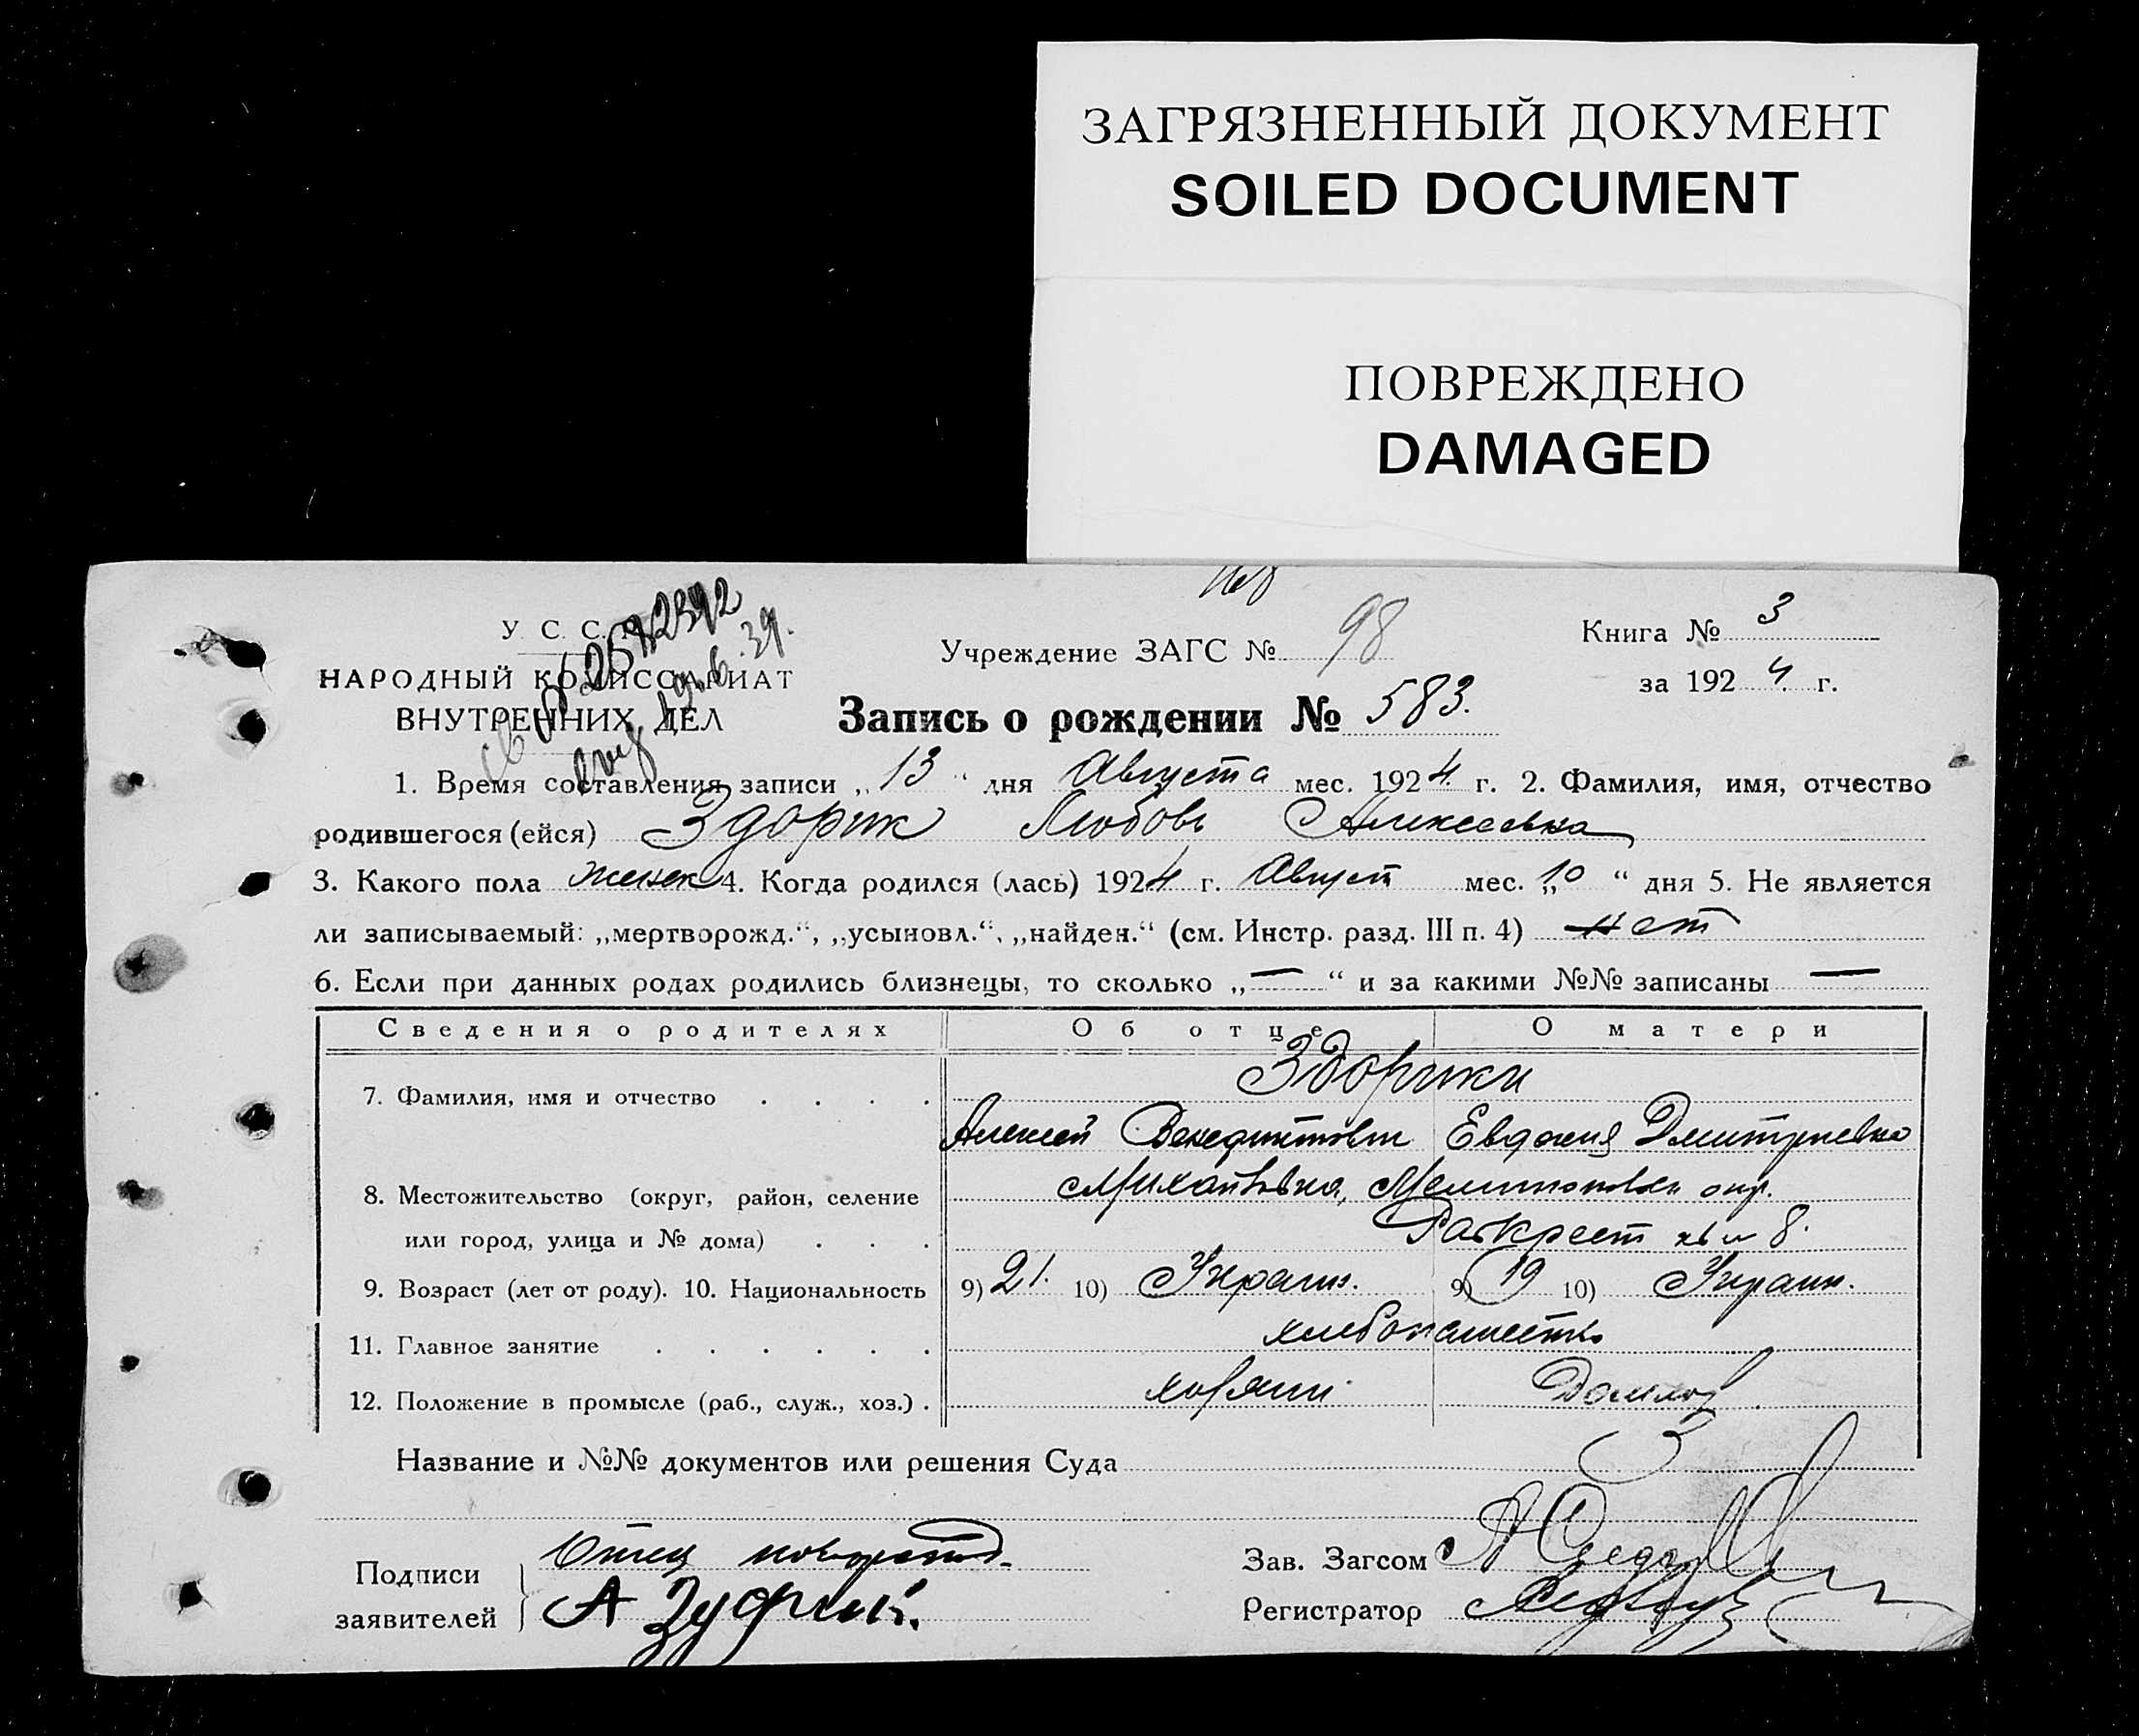 ЗАГРЯЗНЕННЫЙ ДОКУМЕНТ
SOILED DOCUMENT
ПОВРЕЖДЕНО
DAMAGED
У. С. С. Р.
НАРОДНЫЙ КОМИССАРИАТ
ВНУТРЕННИХ ДЕЛ
Учреждение ЗАГС № 98
Книга № 3
за 1924 г.
Запись о рождении № 583.
1. Время составления записи „13“ дня Августа мес. 1924 г. 2. Фамилия, имя, отчество
родившегося (ейся) Здорик Любовь Алексеевна
3. Какого пола женск 4. Когда родился (лась) 1924 г. Август мес. „10“ дня 5. Не является
ли записываемый: „мертворожд.“, „усыновл.“, „найден.“ (см. Инстр. разд. III п. 4) нет
6. Если при данных родах родились близнецы, то сколько „—“ и за какими №№ записаны —
Сведения о родителях Об отце О матери
Здорики
7. Фамилия, имя и отчество
Алексей Венедиктович Евдокия Дмитриевна
8. Местожительство (округ, район, селение Михайловка, Мелитопольск окр.
или город, улица и № дома) 8.
9. Возраст (лет от роду). 10. Национальность 9) 21. 10) Украин. 9) 19 10) Украин.
11. Главное занятие хлебопашество
12. Положение в промысле (раб., служ., хоз.) хозяин Домхоз.
Название и №№ документов или решения Суда
Подписи Отец
заявителей А
Зав. Загсом
Регистратор